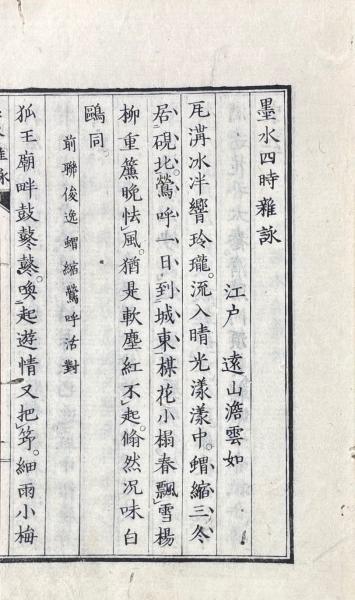 墨水四時雜詠
江戶 遠山澹雲如
瓦溝冰泮響玲瓏。流入晴光漾漾中。蝟縮三冬
居硯北。鶯呼一日到城東。楳花小榻春飄雪。楊
柳重簾晚怯風。猶是軟塵紅不起。翛然況味白
鷗同。
前聯俊逸蝟縮鶯呼活對
狐王廟畔鼓鼕鼕。喚起遊情又把笻。細雨小梅